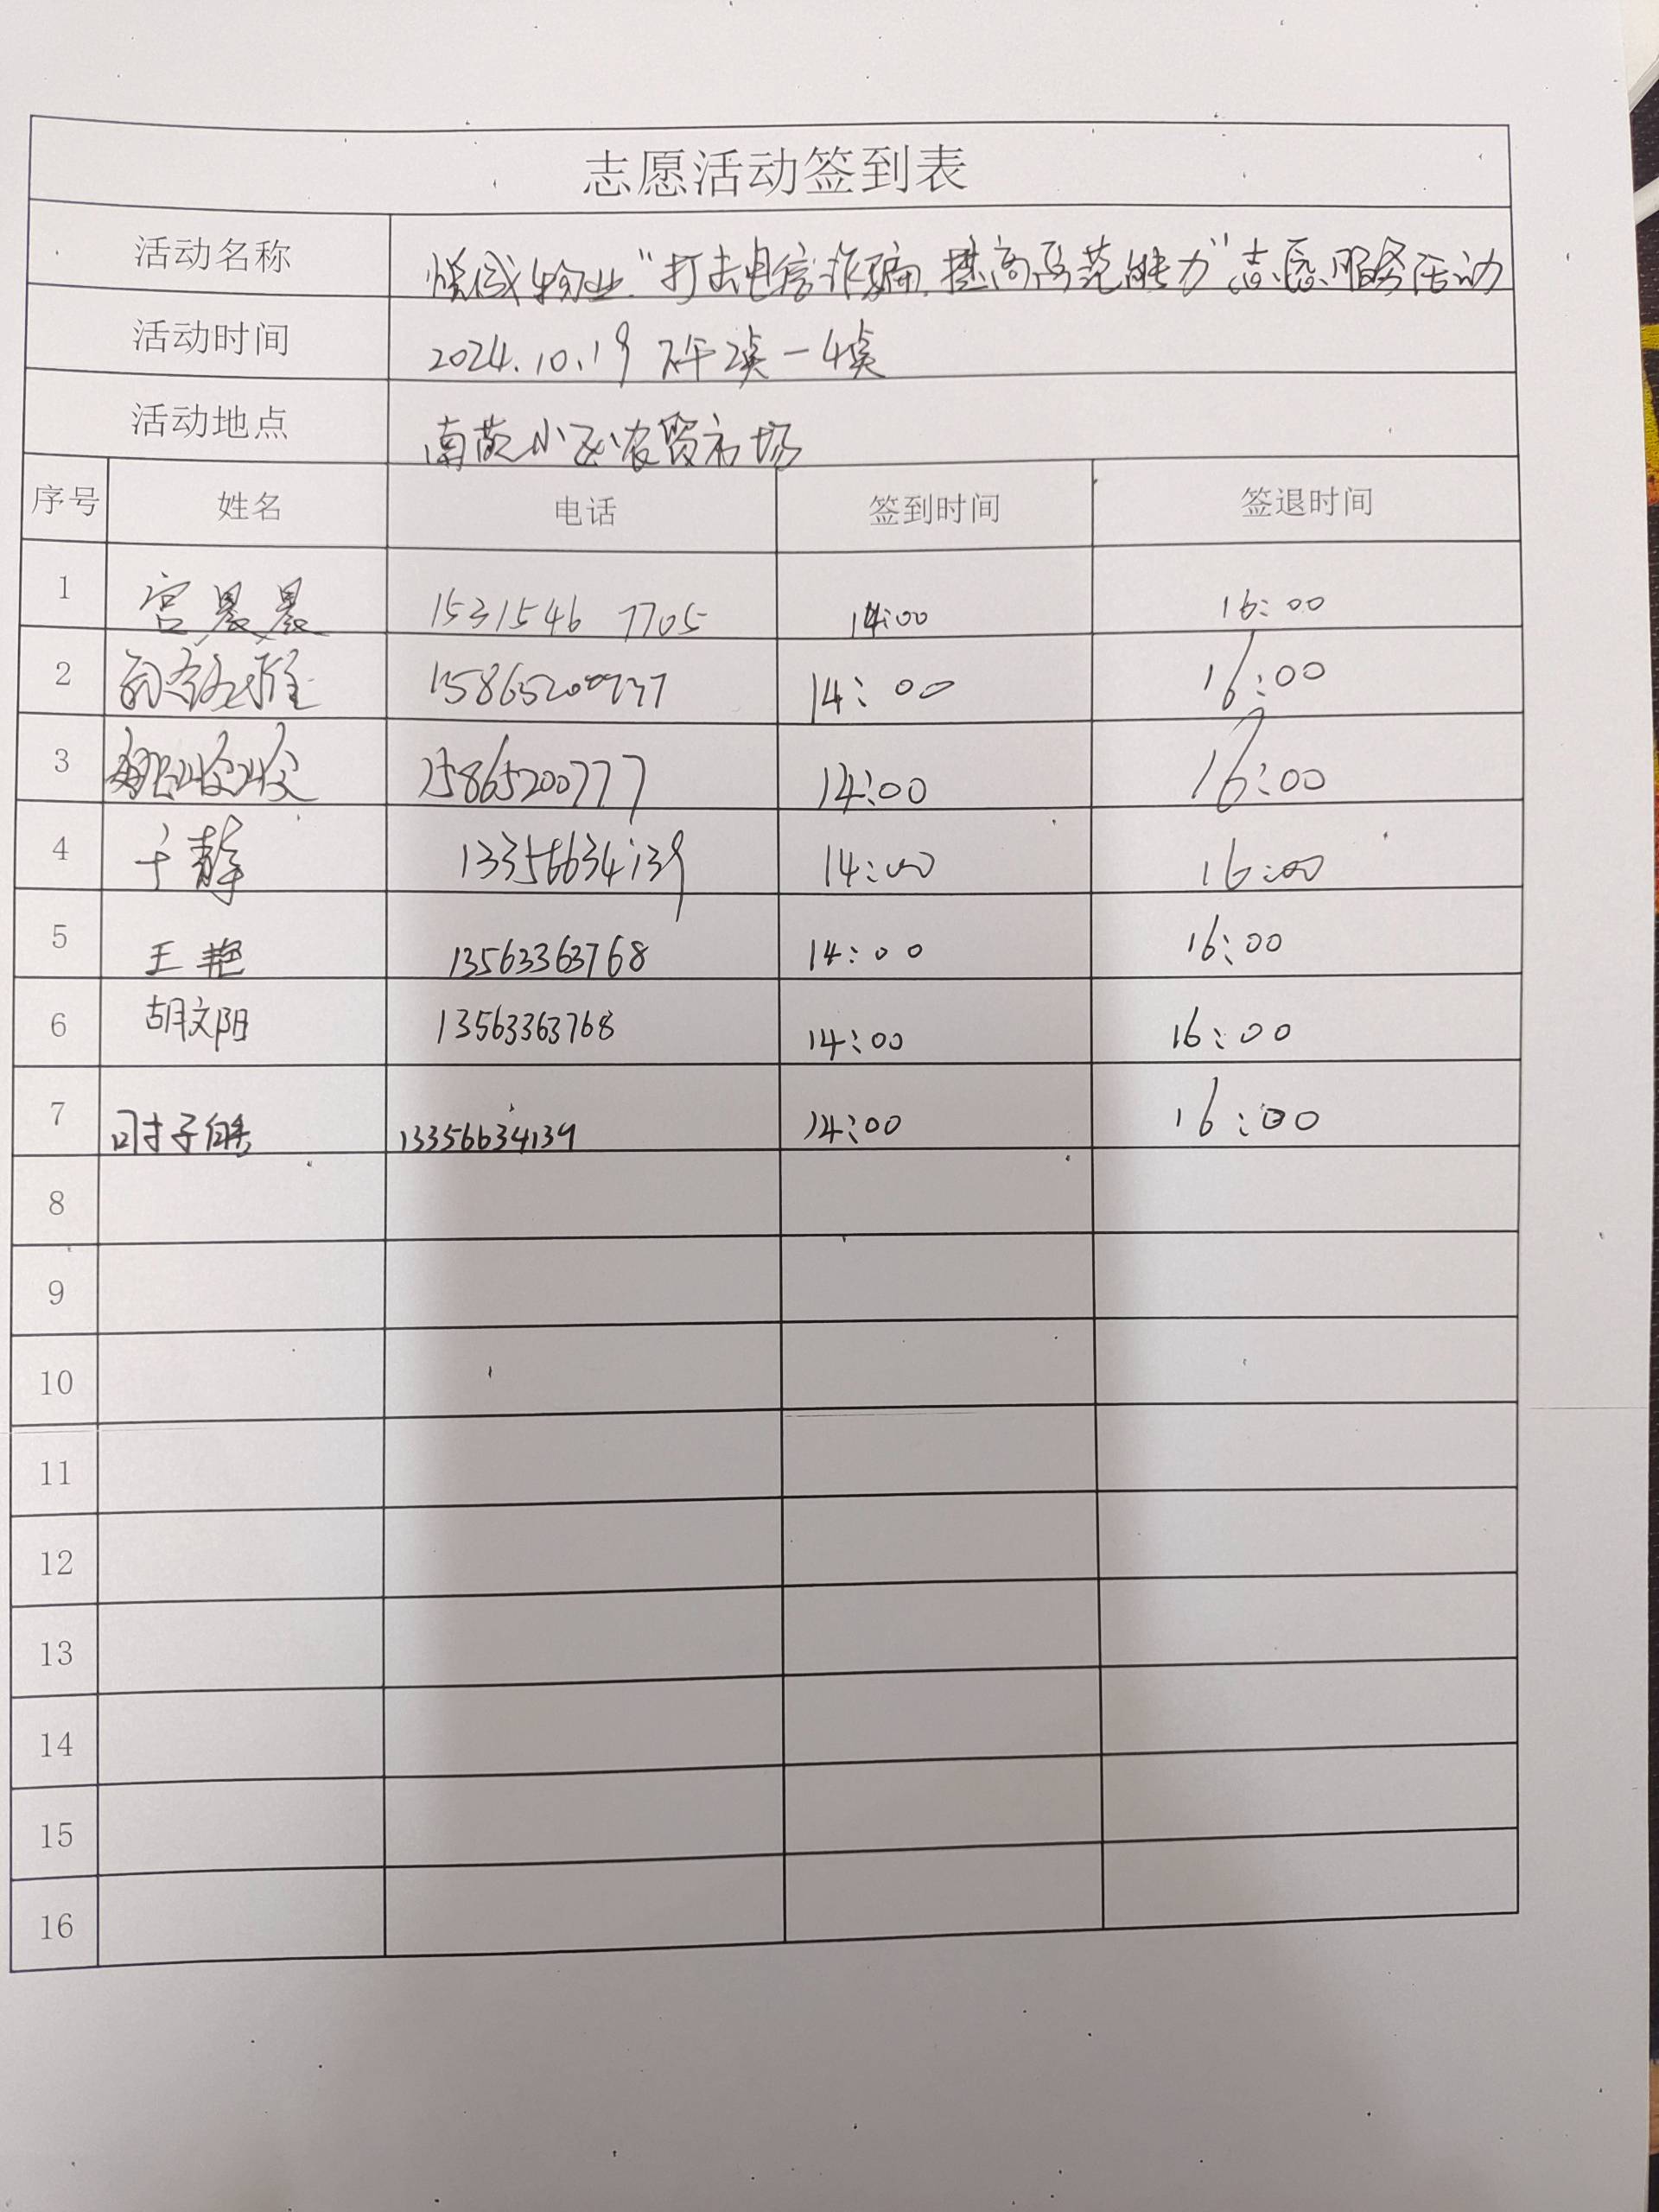 志愿活动签到表
活动名称 悦城物业“打击电信诈骗,提高防范能力”志愿服务活动
活动时间 2024.10.19 下午2点-4点
活动地点 南苑小区农贸市场
序号 姓名 电话 签到时间 签退时间
1 宫晨晨 15315467705 14:00 16:00
2 15865200777 14:00 16:00
3 15865200777 14:00 16:00
4 于静 13356634139 14:00 16:00
5 王艳 13563363768 14:00 16:00
6 胡文阳 13563363768 14:00 16:00
7 时子皓 13356634139 14:00 16:00
8
9
10
11
12
13
14
15
16